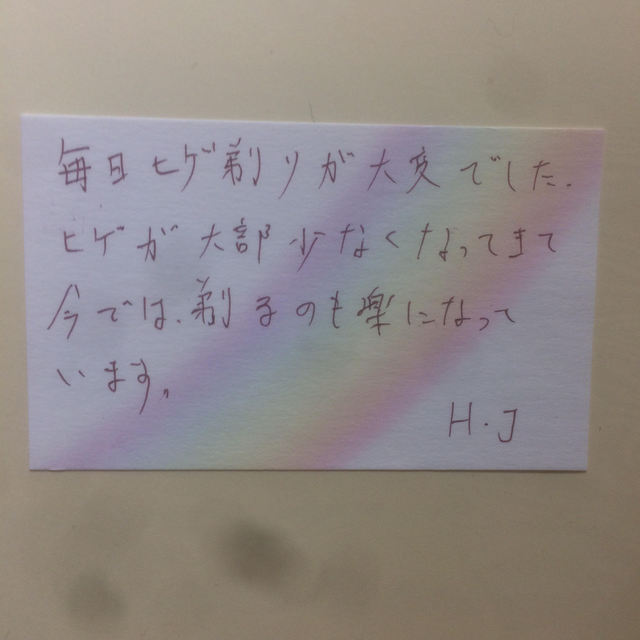 毎日ヒゲ剃りが大変でした.
ヒゲが大部少なくなってきて
今では、剃るのも楽になって
います。
H.J